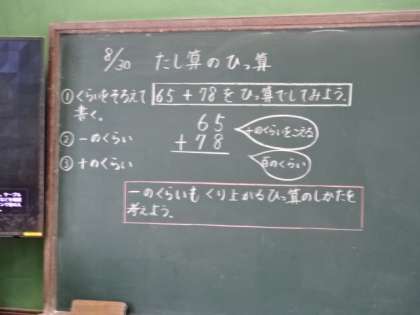 8/30 たし算のひっ算
①くらいをそろえて書く。
65+78をひっ算でしてみよう。
65
+78
十のくらいをこえる
百のくらい
②一のくらい
③十のくらい
一のくらいもくり上がるひっ算のしかたを
考えよう。